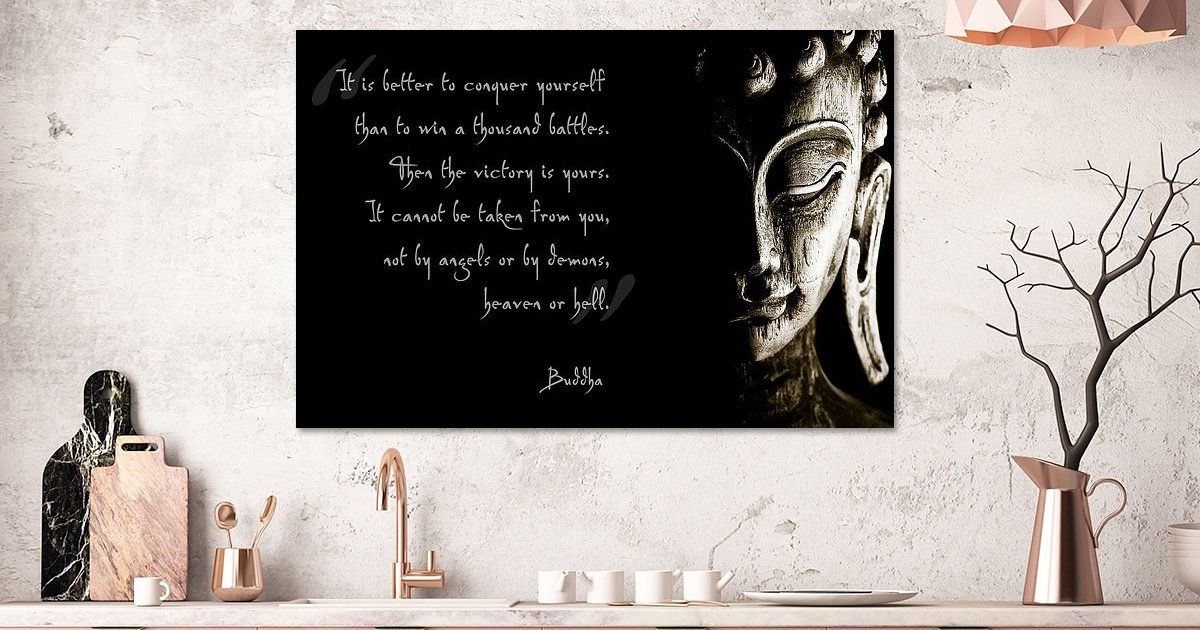 “It is better to conquer yourself
than to win a thousand battles.
Then the victory is yours.
It cannot be taken from you,
not by angels or by demons,
heaven or hell.”
Buddha